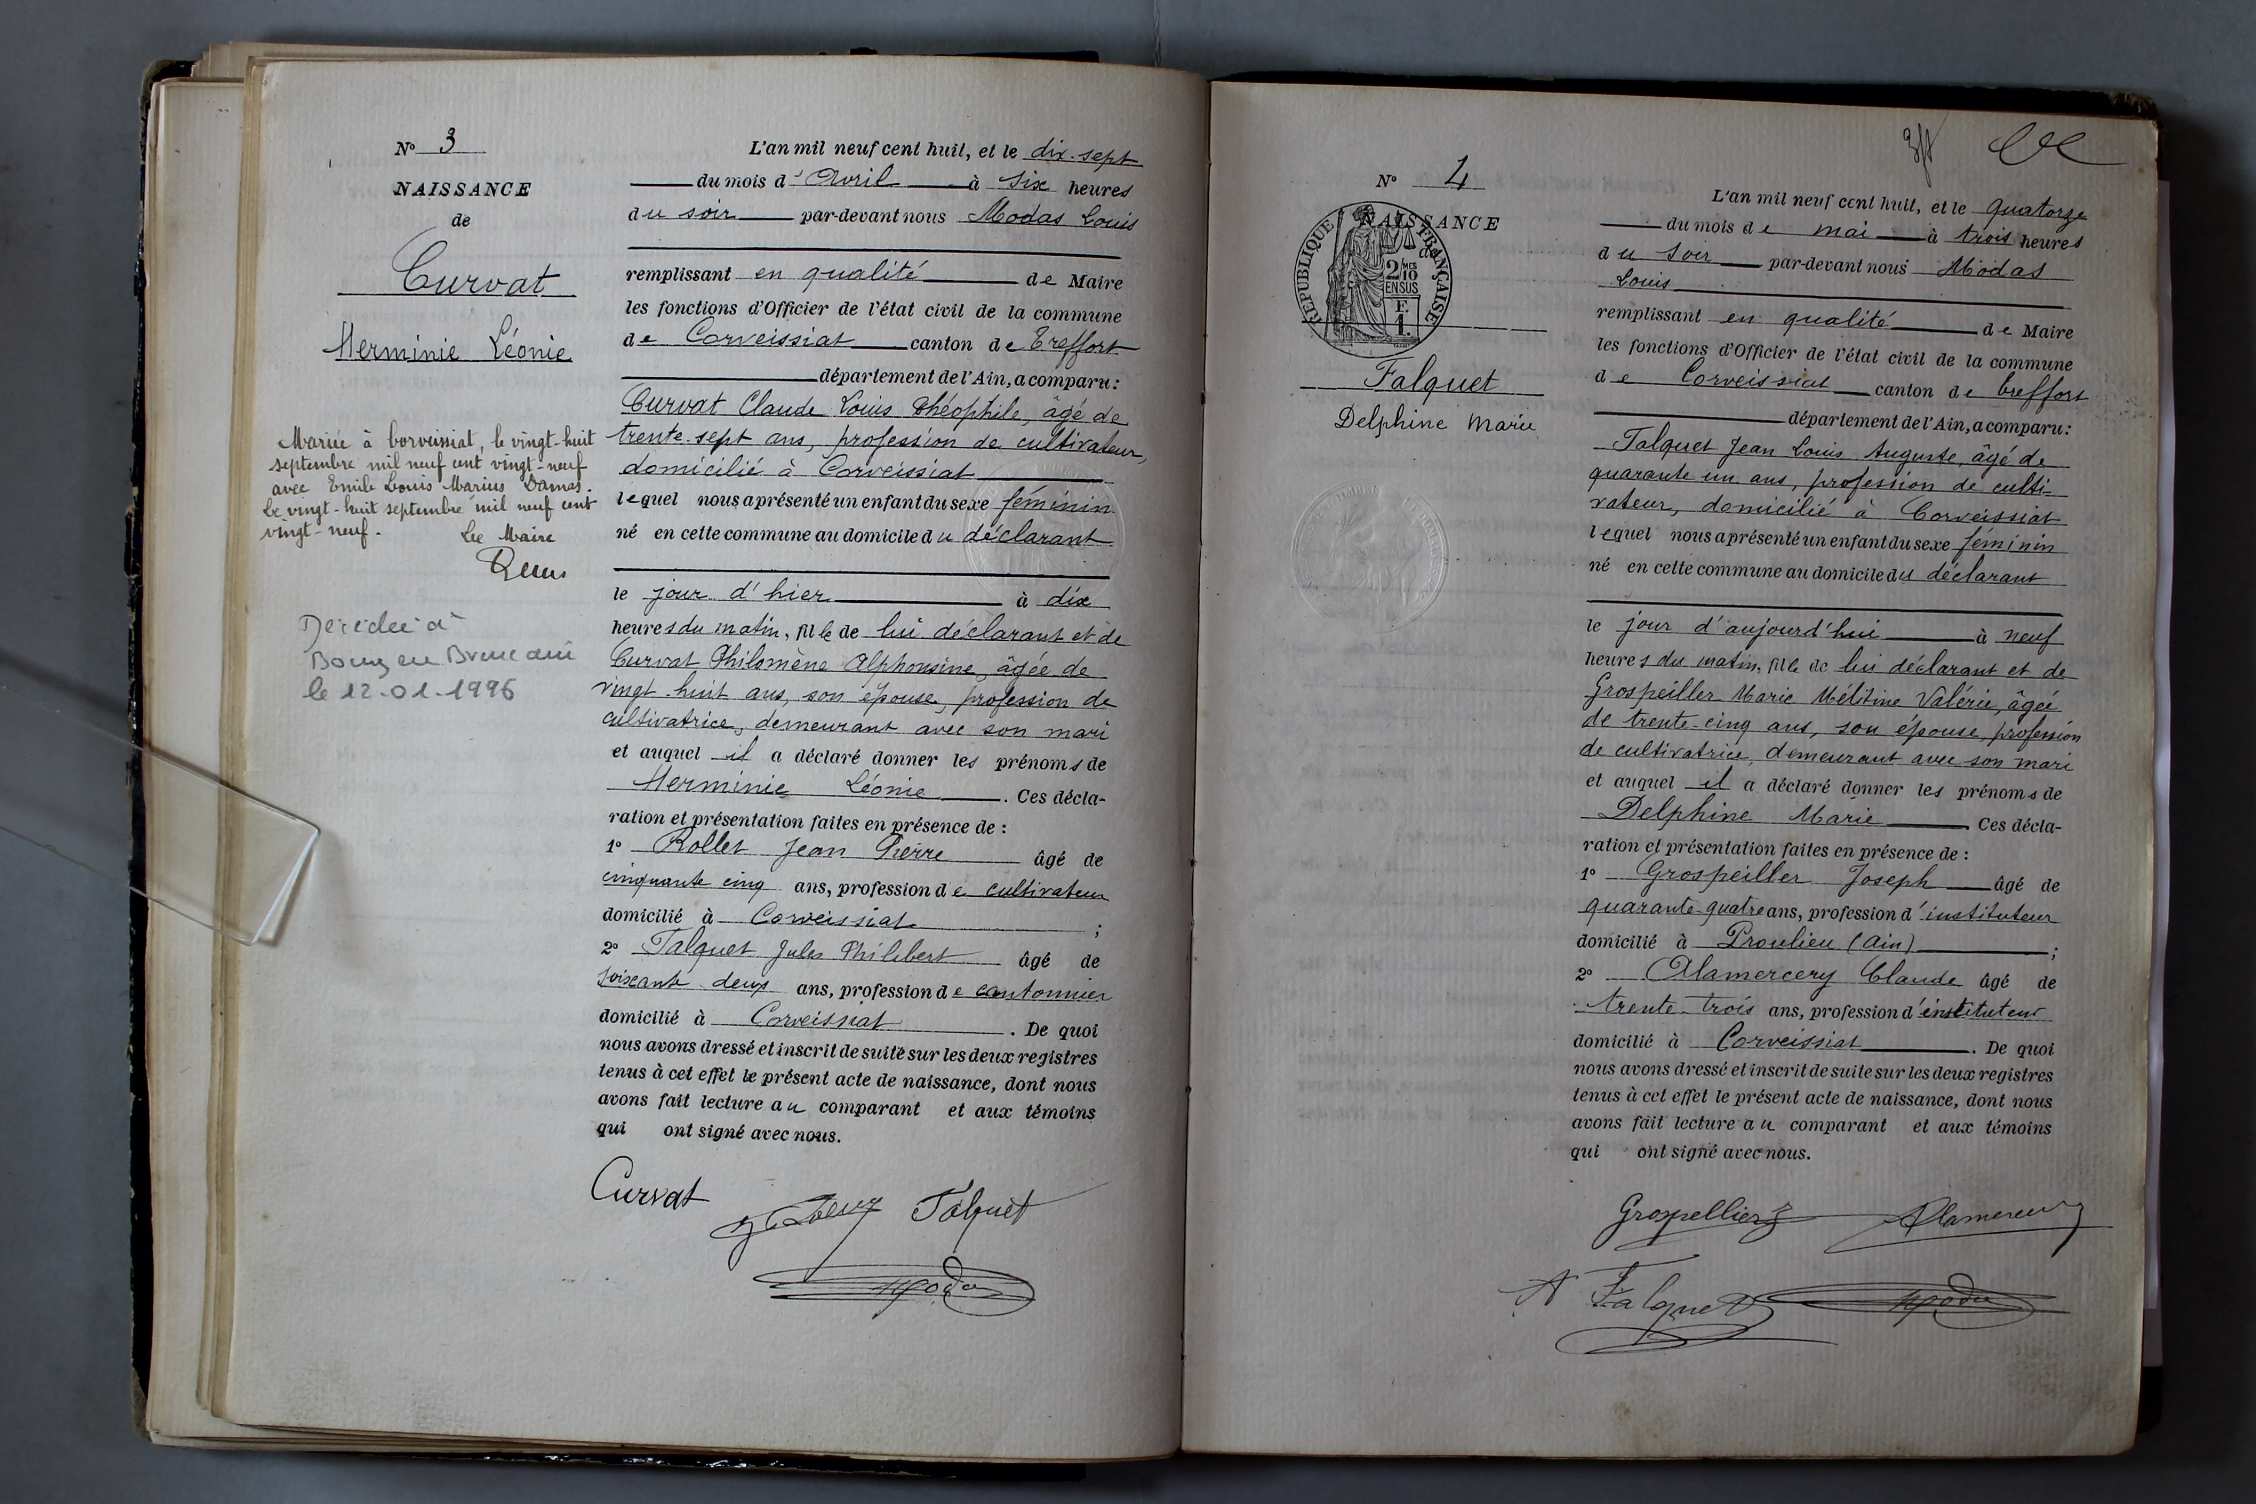 N° 3
NAISSANCE
de
Curvat
Herminie Léonie
Mariée à Corveissiat, le vingt-huit
septembre mil neuf cent vingt-neuf
avec Emile Louis Marius Damas.
Le vingt-huit septembre mil neuf cent
vingt-neuf.
Le Maire
Décédée à
Bourg en Bresse ain
le 12-01-1996
L'an mil neuf cent huit, et le dix-sept
du mois d'Avril à six heures
du soir par-devant nous Modas Louis
remplissant en qualité de Maire
les fonctions d'Officier de l'état civil de la commune
de Corveissiat canton de Treffort
département de l'Ain, a comparu :
Curvat Claude Louis Théophile, âgé de
trente-sept ans, profession de cultivateur,
domicilié à Corveissiat
lequel nous a présenté un enfant du sexe féminin
né en cette commune au domicile du déclarant
le jour d'hier à dix
heures du matin, fille de lui déclarant et de
Curvat Philomène Alphonsine, âgée de
vingt-huit ans, son épouse, profession de
cultivatrice, demeurant avec son mari
et auquel il a déclaré donner les prénoms de
Herminie Léonie. Ces décla-
ration et présentation faites en présence de :
1° Rollet Jean Pierre âgé de
cinquante cinq ans, profession de cultivateur
domicilié à Corveissiat ;
2° Falquet Jules Philibert âgé de
soixante deux ans, profession de cantonnier
domicilié à Corveissiat. De quoi
nous avons dressé et inscrit de suite sur les deux registres
tenus à cet effet le présent acte de naissance, dont nous
avons fait lecture au comparant et aux témoins
qui ont signé avec nous.
Curvat
Falquet
Modas
N° 4
NAISSANCE
de
RÉPUBLIQUE FRANÇAISE
2/10 MES
EN SUS
F.
1.
Falquet
Delphine Marie
L'an mil neuf cent huit, et le quatorze
du mois de mai à trois heures
du soir par-devant nous Modas
Louis
remplissant en qualité de Maire
les fonctions d'Officier de l'état civil de la commune
de Corveissiat canton de Treffort
département de l'Ain, a comparu :
Falquet Jean Louis Auguste, âgé de
quarante un ans, profession de culti-
vateur, domicilié à Corveissiat
lequel nous a présenté un enfant du sexe feminin
né en cette commune au domicile du déclarant
le jour d'aujourd'hui à neuf
heures du matin, fille de lui déclarant et de
Grospeiller Marie Mélitine Valérie, âgée
de trente-cinq ans, son épouse, profession
de cultivatrice, demeurant avec son mari
et auquel il a déclaré donner les prénoms de
Delphine Marie. Ces décla-
ration et présentation faites en présence de :
1° Grospeiller Joseph âgé de
quarante-quatre ans, profession d'instituteur
domicilié à Proulieu (Ain) ;
2° Alamercery Claude âgé de
trente-trois ans, profession d'instituteur
domicilié à Corveissiat. De quoi
nous avons dressé et inscrit de suite sur les deux registres
tenus à cet effet le présent acte de naissance, dont nous
avons fait lecture au comparant et aux témoins
qui ont signé avec nous.
Grospellier Alamercery
A Falquet Modas